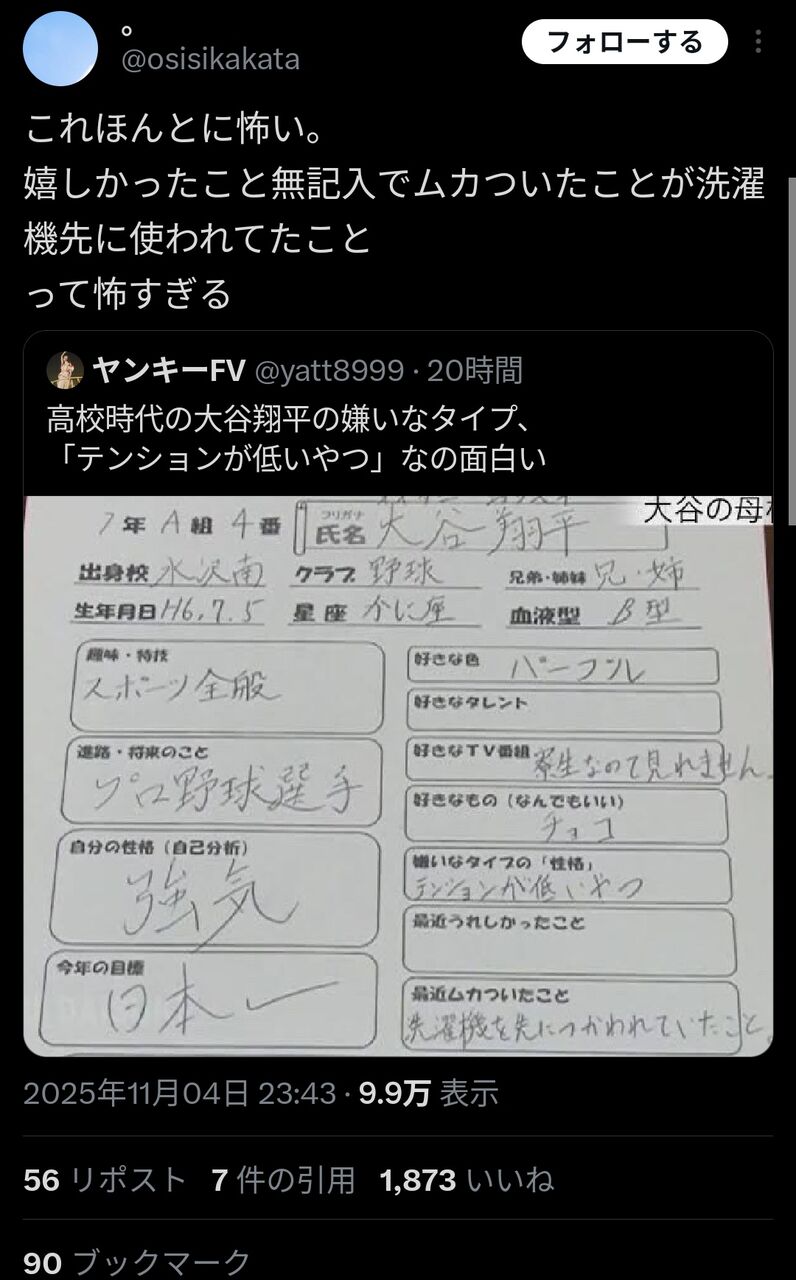 。
@osisikakata
フォローする
これほんとに怖い。
嬉しかったこと無記入でムカついたことが洗濯
機先に使われてたこと
って怖すぎる
ヤンキーFV @yatt8999 · 20時間
高校時代の大谷翔平の嫌いなタイプ、
「テンションが低いやつ」なの面白い
大谷の母
7年 A組 4番
フリガナ
氏名 大谷 翔平
出身校 水沢南 クラブ 野球 兄弟・姉妹 兄・姉
生年月日 H6.7.5 星座 かに座 血液型 B型
趣味・特技
スポーツ全般
進路・将来のこと
プロ野球選手
自分の性格(自己分析)
強気
今年の目標
日本一
好きな色 パープル
好きなタレント
好きなTV番組 寮生なので見れません。
好きなもの(なんでもいい)
チョコ
嫌いなタイプの「性格」
テンションが低いやつ
最近うれしかったこと
最近ムカついたこと
洗濯機を先につかわれていたこと。
2025年11月04日 23:43 · 9.9万 表示
56 リポスト 7 件の引用 1,873 いいね
90 ブックマーク